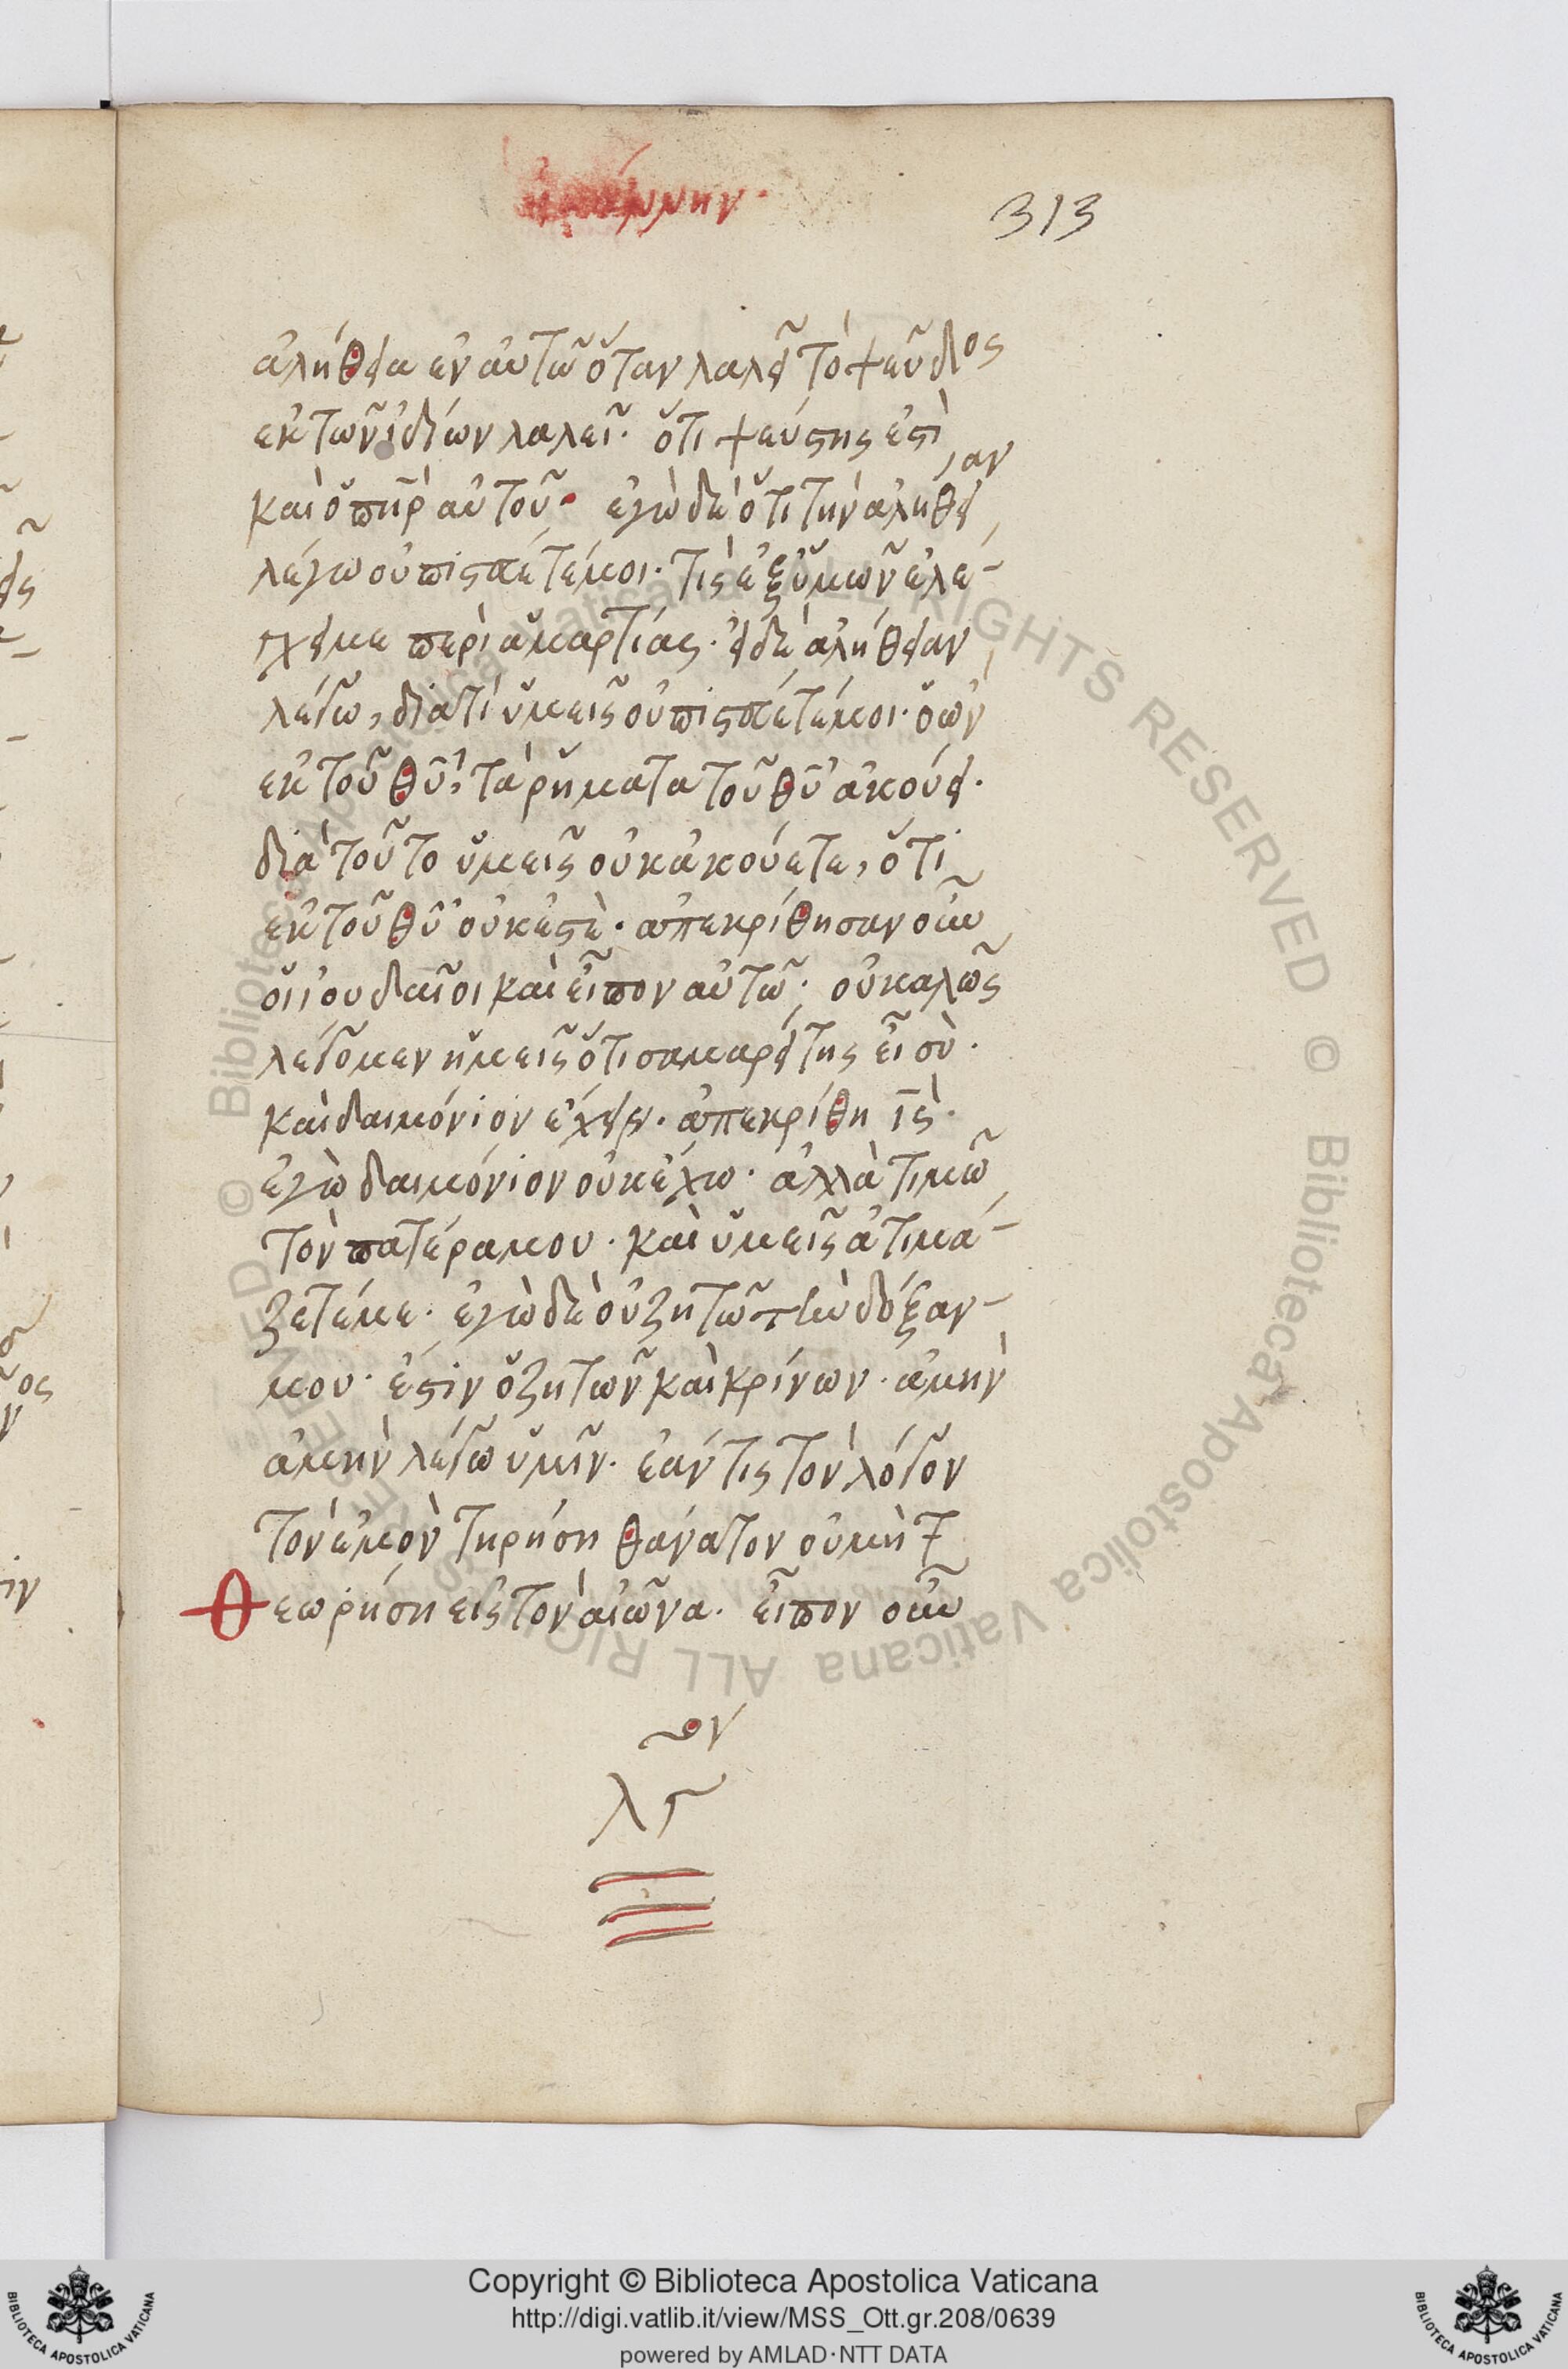 313
ἀλήθεια ἐν αὐτῶ ὅταν λαλεῖ τὸ ψεῦδος
ἐκ τῶν ἰδίων λαλεῖ· ὅτι ψεύστης ἐστὶ
καὶ ὁ πη̄ρ αὐτοῦ· ἐγὼ δὲ ὅτι τὴν ἀλήθειαν
λέγω οὐ πιστεύετέ μοι· τίς ἐξ ὑμῶν ἐλέ-
γχει με περὶ ἁμαρτίας· εἰ δὲ ἀλήθειαν
λέγω, διατί ὑμεῖς οὐ πιστεύετέ μοι· ὁ ὢν
ἐκ τοῦ θῡ, τὰ ρήματα τοῦ θῡ ἀκούει·
διὰ τοῦτο ὑμεῖς οὐκ ἀκούετε, ὅτι
ἐκ τοῦ θῡ οὐκ ἐστὲ· ἀπεκρίθησαν οὖν
οἱ ἰουδαῖοι καὶ εἶπον αὐτῶ· οὐ καλῶς
λέγομεν ἡμεῖς ὅτι σαμαρείτης εἶ σὺ·
καὶ δαιμόνιον ἔχεις· ἀπεκρίθη ῑς·
ἐγὼ δαιμόνιον οὐκ ἔχω· ἀλλὰ τιμῶ
τὸν πατέρα μου· καὶ ὑμεῖς ἀτιμά-
ζετέ με· ἐγὼ δὲ οὐ ζητῶ τὴν δόξαν
μου· ἔστιν ὁ ζητῶν καὶ κρίνων· ἀμὴν
ἀμὴν λέγω ὑμῖν· ἐάν τις τὸν λόγον
τὸν ἐμὸν τηρήση θάνατον οὐ μὴ
θεωρήση εἰς τὸν αἰῶνα· εἶπον οὖν
λγ
Copyright © Biblioteca Apostolica Vaticana
http://digi.vatlib.it/view/MSS_Ott.gr.208/0639
powered by AMLAD·NTT DATA